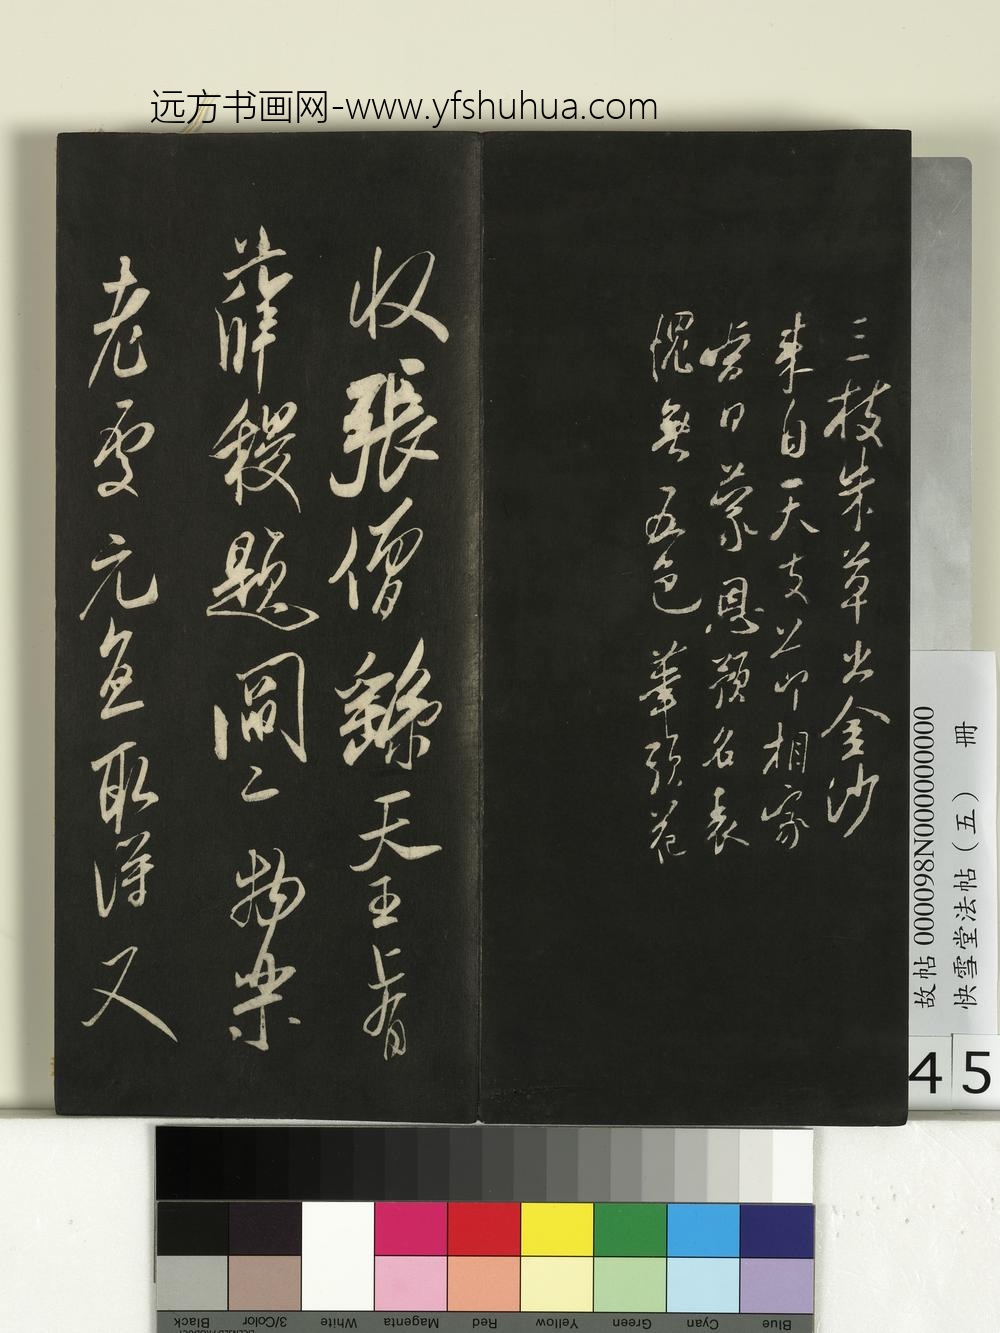 远方书画网-www.yfshuhua.com
三枝朱草出金沙
来自天支节相家
当日蒙恩预名表
愧无五色笔头花
收張僧繇天王上有
薛稷題閻二物樂
老處元直取得又
故帖 000098N000000000
快雪堂法帖（五） 冊
45
Black
3/Color
White
Magenta
Red
Yellow
Green
Cyan
Blue